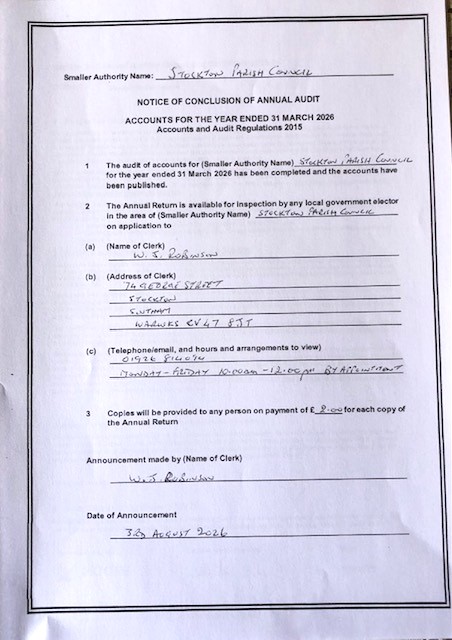 Smaller Authority Name: STOCKTON PARISH COUNCIL
NOTICE OF CONCLUSION OF ANNUAL AUDIT
ACCOUNTS FOR THE YEAR ENDED 31 MARCH 2026
Accounts and Audit Regulations 2015
1 The audit of accounts for (Smaller Authority Name) STOCKTON PARISH COUNCIL
for the year ended 31 March 2026 has been completed and the accounts have
been published.
2 The Annual Return is available for inspection by any local government elector
in the area of (Smaller Authority Name) STOCKTON PARISH COUNCIL
on application to
(a) (Name of Clerk)
W. J. ROBINSON
(b) (Address of Clerk)
74 GEORGE STREET
STOCKTON
SOUTHAM
WARWKS CV47 8JT
(c) (Telephone/email, and hours and arrangements to view)
01926 814094
MONDAY - FRIDAY 10.00am - 12.00pm BY APPOINTMENT
3 Copies will be provided to any person on payment of £ 2.00 for each copy of
the Annual Return
Announcement made by (Name of Clerk)
W. J. ROBINSON
Date of Announcement
3RD AUGUST 2026